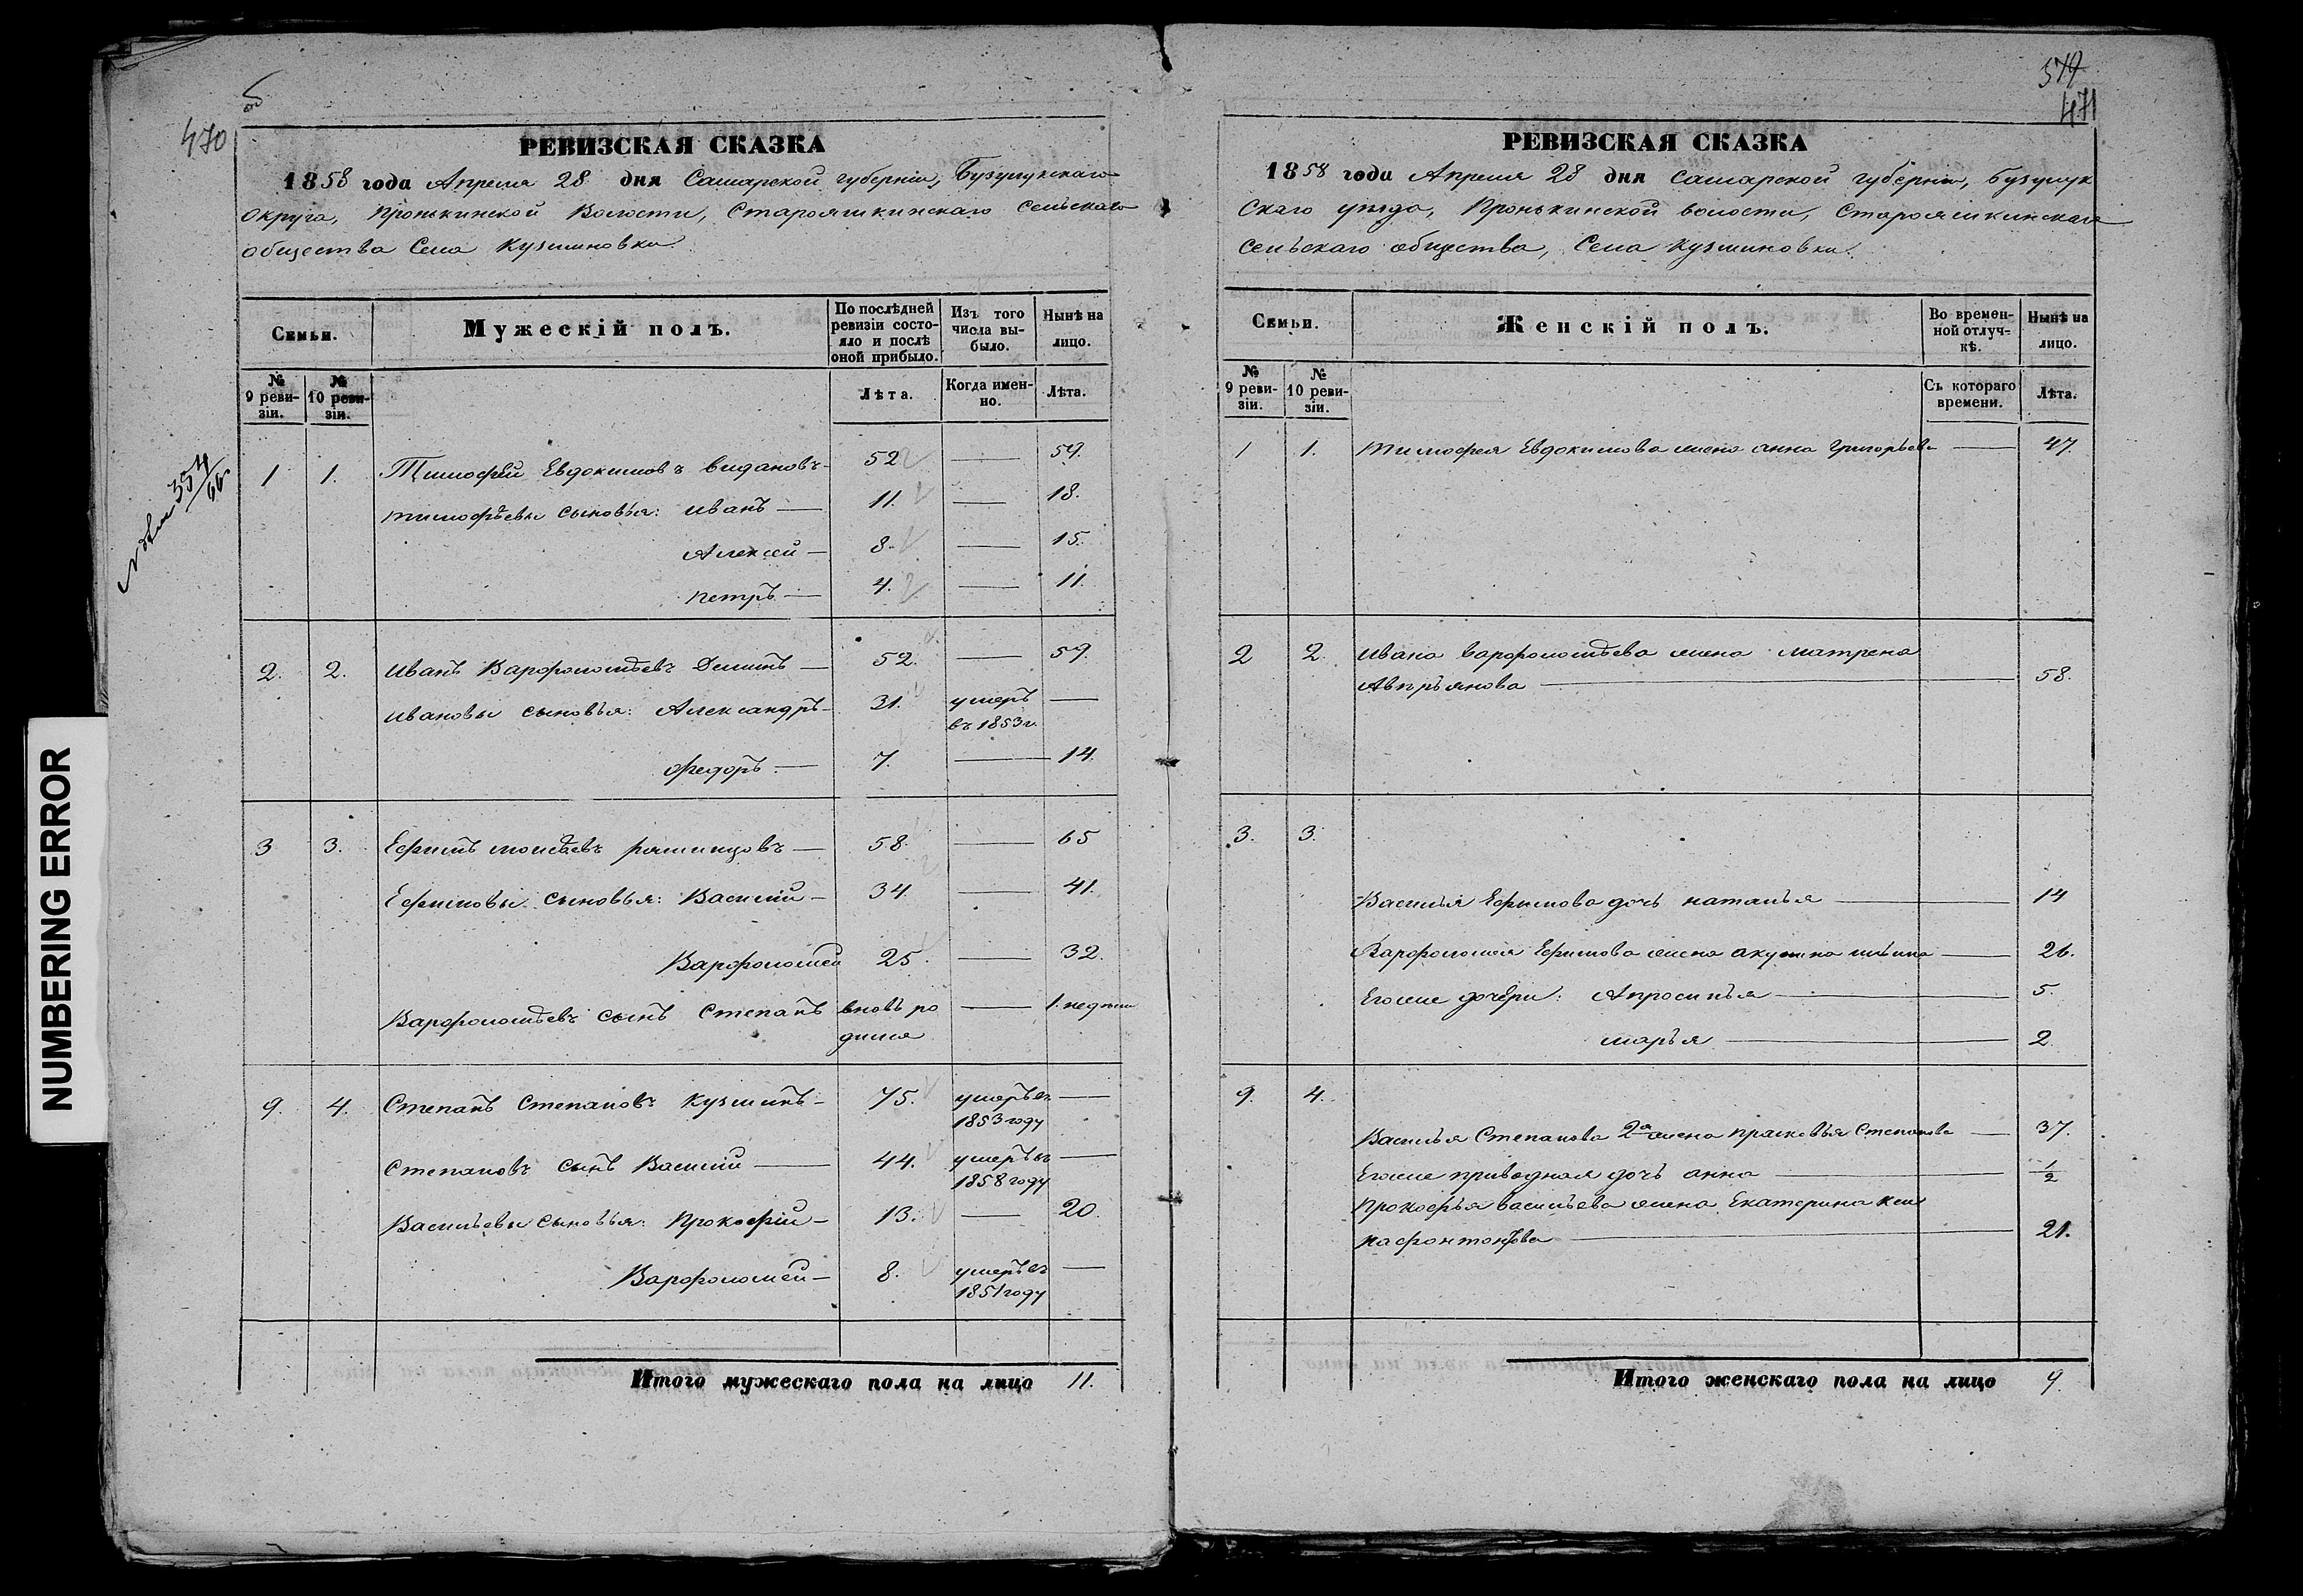 470
РЕВИЗСКАЯ СКАЗКА
1858 года Апреля 28 дня Самарской губерніи, Бузулукскаго
Округа, Пронькинской Волости, Старояшкинскаго Сельскаго
общества Села Кузминовки.
Семьи.
Мужескій полъ.
По послѣдней ревизіи состояло и послѣ оной прибыло.
Изъ того числа выбыло.
Нынѣ на лицо.
№ 9 ревизіи.
№ 10 ревизіи.
Лѣта.
Когда именно.
Лѣта.
1 1. Тимофей Евдокимовъ Видановъ — 52 — 59.
Тимофѣевы сыновья: Иванъ — 11. — 18.
Алексей — 8. — 15.
Петръ — 4. — 11.
2. 2. Иванъ Варфоломѣевъ Деминъ — 52. — 59.
Ивановы сыновья: Александръ — 31. умеръ —
въ 1853 г.
Федоръ — 7. — 14.
3 3. Ефимъ Моисѣевъ — 58. — 65
Ефимовы сыновья: Василій — 34. — 41.
Варфоломей 25. — 32.
Варфоломѣевъ сынъ Степанъ вновь ро — 1. недѣли
дился
9. 4. Степанъ Степановъ Кузминъ — 75. умеръ въ —
1853 году
Степановъ сынъ Василій — 44. умеръ въ —
1858 году
Васильевы сыновья: Прокофій — 13. — 20.
Варфоломей — 8. умеръ въ —
1851 году
Итого мужескаго пола на лицо 11.
579
471
РЕВИЗСКАЯ СКАЗКА
1858 года Апреля 28 дня Самарской губерніи, Бузулук
скаго уѣзда, Пронькинской волости, Старояшкинскаго
Сельскаго общества, Села Кузминовки.
Семьи.
Женскій полъ.
Во временной отлучкѣ.
Нынѣ на лицо.
№ 9 ревизіи.
№ 10 ревизіи.
Съ котораго времени.
Лѣта.
1 1. Тимофея Евдокимова жена Анна Григорьева — 47.
2 2. Ивана Варфоломѣева жена Матрена
Авпръянова — 58.
3. 3.
Василья Ефимова дочь Наталья — 14
Варфоломея Ефимова жена Акулина — 26.
Егоже дочери: Апросинья — 5.
Марья — 2.
9. 4.
Василья Степанова 2я жена Прасковья Степанова — 37.
Егоже приводная дочь Анна — 1/2
Прокофья Васильева жена Екатерина — 21.
Итого женскаго пола на лицо 9.
NUMBERING ERROR